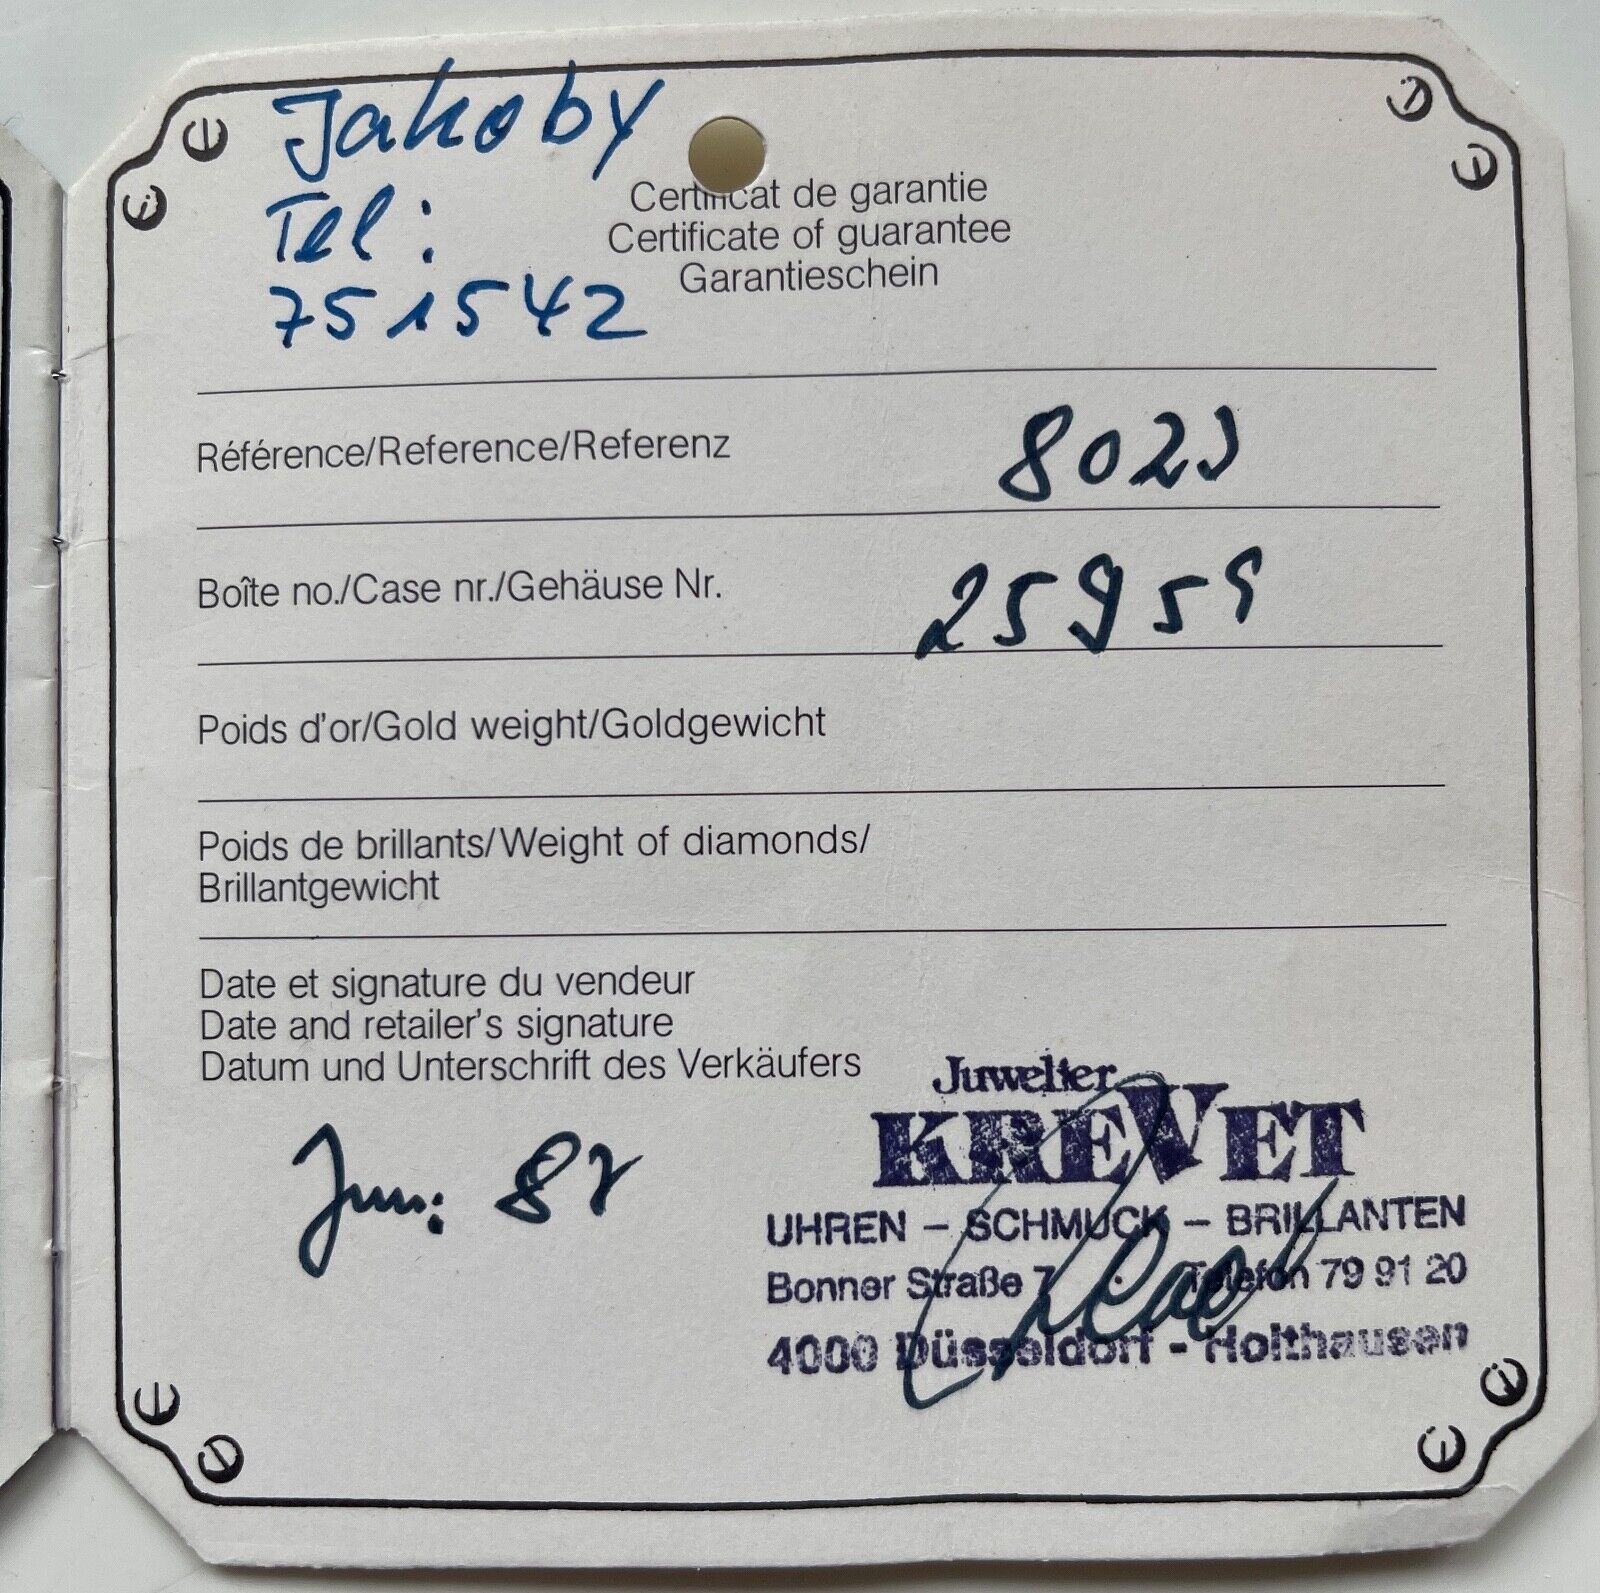 Jakoby
Tel:
751542
Certificat de garantie
Certificate of guarantee
Garantieschein
Référence/Reference/Referenz 8023
Boîte no./Case nr./Gehäuse Nr. 25959
Poids d'or/Gold weight/Goldgewicht
Poids de brillants/Weight of diamonds/
Brillantgewicht
Date et signature du vendeur
Date and retailer's signature
Datum und Unterschrift des Verkäufers
Juni 87
Juwelier
KREVET
UHREN – SCHMUCK – BRILLANTEN
Bonner Straße 7 · Telefon 79 91 20
4000 Düsseldorf - Holthausen